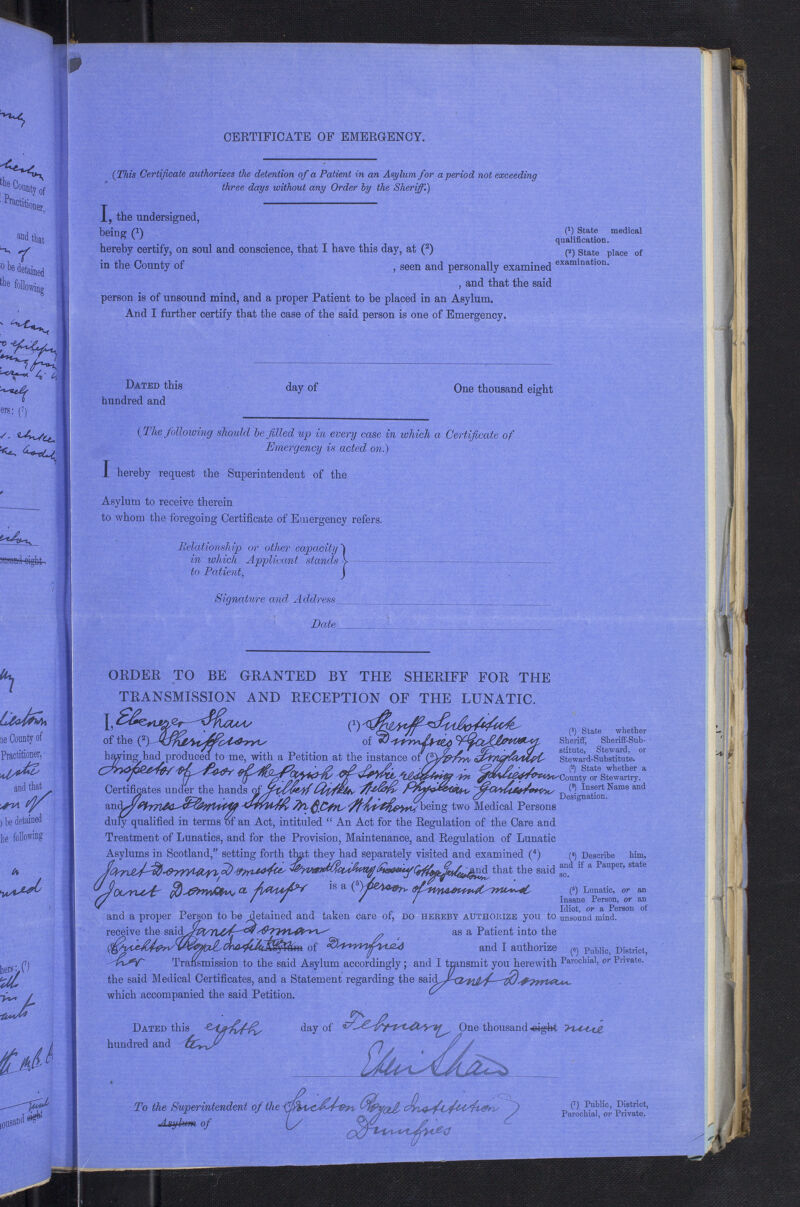 CERTIFICATE OF EMERGENCY.
(This Certificate authorizes the detention of a Patient in an Asylum for a period not exceeding
three days without any Order by the Sheriff.)
I, the undersigned,
being (1)
hereby certify, on soul and conscience, that I have this day, at (2)
in the County of , seen and personally examined
, and that the said
person is of unsound mind, and a proper Patient to be placed in an Asylum.
And I further certify that the case of the said person is one of Emergency.
(1) State medical
qualification.
(2) State place of
examination.
DATED this day of One thousand eight
hundred and
(The following should be filled up in every case in which a Certificate of
Emergency is acted on.)
I hereby request the Superintendent of the
Asylum to receive therein
to whom the foregoing Certificate of Emergency refers.
Relationship or other capacity
in which Applicant stands
to Patient,
Signature and Address
Date
ORDER TO BE GRANTED BY THE SHERIFF FOR THE
TRANSMISSION AND RECEPTION OF THE LUNATIC.
I, Ebenezer Shaw (1) Sheriff Substitute
of the (2) Sheriffdom of Dumfries & Galloway
having had produced to me, with a Petition at the instance of (3) John England
Inspector of Poor of the Parish of Sorbie residing in Garliestown
Certificates under the hands of Gilbert Aitken Welsh Physician Garliestown
and James Fleming Smith M.B.C.M Whithorn being two Medical Persons
duly qualified in terms of an Act, intituled " An Act for the Regulation of the Care and
Treatment of Lunatics, and for the Provision, Maintenance, and Regulation of Lunatic
Asylums in Scotland," setting forth that they had separately visited and examined (4)
Janet Dornan, Domestic Servant Railway Crossing Cottage Garliestown and that the said
Janet Dornan a pauper is a (5) person of unsound mind
and a proper Person to be detained and taken care of, DO HEREBY AUTHORIZE YOU to
receive the said Janet Dornan as a Patient into the
Crichton Royal Institution Asylum of Dumfries and I authorize
her Transmission to the said Asylum accordingly; and I transmit you herewith
the said Medical Certificates, and a Statement regarding the said Janet Dornan
which accompanied the said Petition.
(1) State whether
Sheriff, Sheriff-Sub-
stitute, Steward, or
Steward-Substitute.
(2) State whether a
County or Stewartry.
(3) Insert Name and
Designation.
(4) Describe him,
and if a Pauper, state
so.
(5) Lunatic, or an
Insane Person, or an
Idiot, or a Person of
unsound mind.
(6) Public, District,
Parochial, or Private.
DATED this eighth day of February One thousand eight nine
hundred and ten
Eben Shaw
To the Superintendent of the Crichton Royal Institution
Asylum of Dumfries
(7) Public, District,
Parochial, or Private.